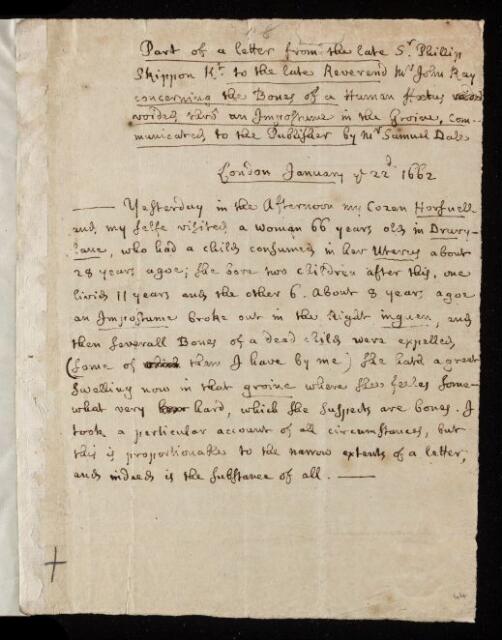 Part of a letter from the late Sr. Phillip
Skippon Kt. to the late Reverend Mr John Ray
concerning the Bones of a Human Foetus
voided thro an Impostume in the Groine, Com-
municated to the Publisher by Mr Samuel Dale
London January ye 22d 1662
— Yesterday in the Afternoon my Cozen Horsnell
and my selfe visited a woman 66 years old in Drury-
lane, who had a child consumed in her Uterus about
28 years agoe; she bore two children after this, one
lived 11 years and the other 6. About 8 years agoe
an Impostume broke out in the Right inguen, and
then severall Bones of a dead child were expelled,
(some of them I have by me) she hath a great
swelling now in that groine where shee feeles some-
what very hard, which she suspects are bones. I
took a perticular account of all circumstances, but
this is proportionate to the narrow extents of a letter,
and indeed is the substance of all. —